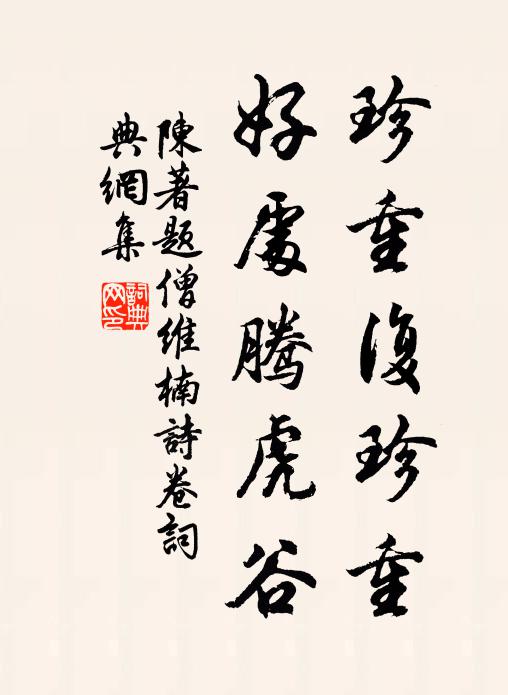 珍重復珍重
好處騰虎谷
陳著題僧維楠詩卷詞
典網集
詞典
网印